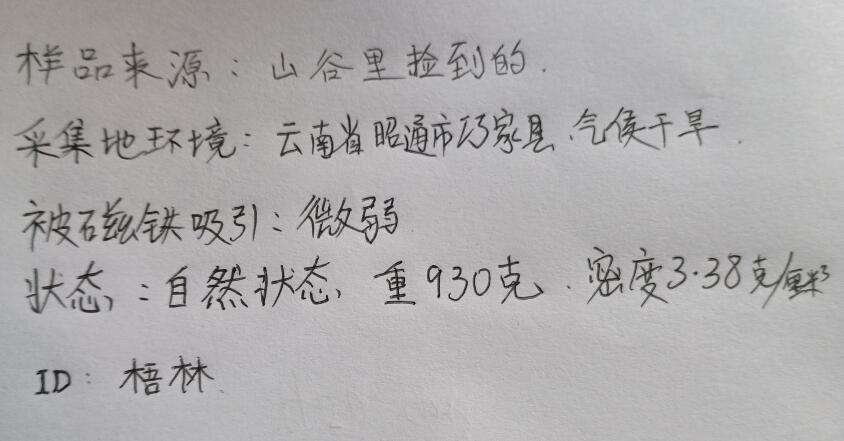 样品来源：山谷里捡到的.
采集地环境：云南省昭通市巧家县.气侯干旱.
被磁铁吸引：微弱
状态：自然状态，重930克.密度3.38克/厘米³
ID：梧林.